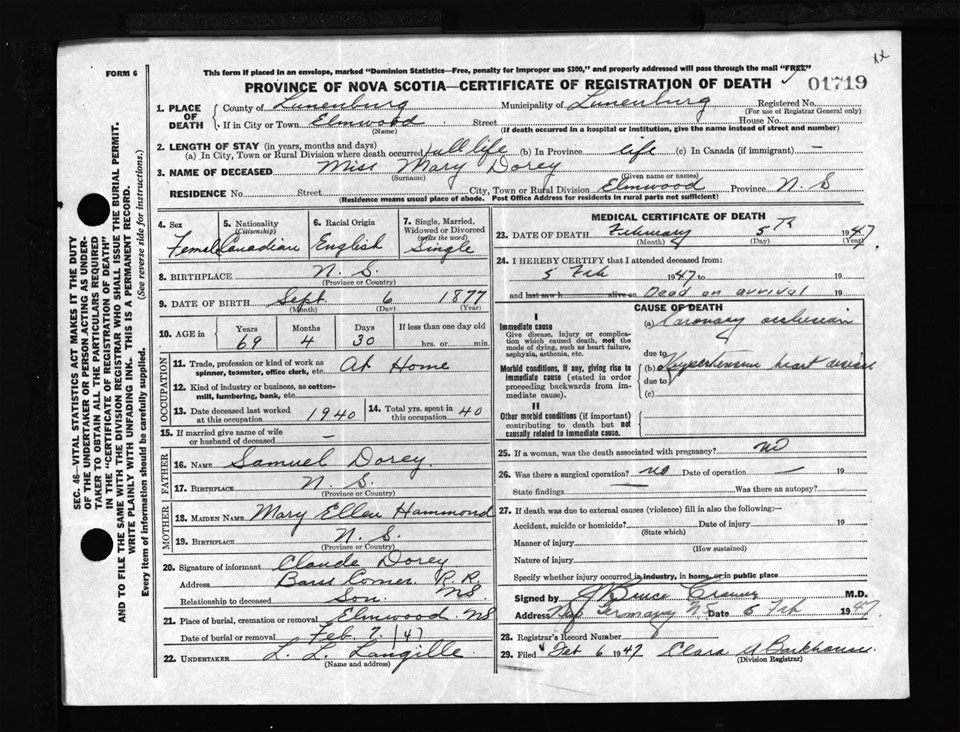 FORM 6
This form if placed in an envelope, marked "Dominion Statistics—Free, penalty for improper use $300," and properly addressed will pass through the mail "FREE"
PROVINCE OF NOVA SCOTIA—CERTIFICATE OF REGISTRATION OF DEATH
01719
1. PLACE OF DEATH County of Lunenburg Municipality of Lunenburg Registered No.
(For use of Registrar General only)
If in City or Town Elmwood Street House No.
(Name) (If death occurred in a hospital or institution, give the name instead of street and number)
2. LENGTH OF STAY (in years, months and days)
(a) In City, Town or Rural Division where death occurred full life (b) In Province life (c) In Canada (if immigrant) —
3. NAME OF DECEASED Miss Mary Dorey
(Surname) (Given name or names)
RESIDENCE No. Street City, Town or Rural Division Elmwood Province N. S
(Residence means usual place of abode. Post Office Address for residents in rural parts not sufficient)
SEC. 46—VITAL STATISTICS ACT MAKES IT THE DUTY
OF THE UNDERTAKER OR PERSON ACTING AS UNDER-
TAKER TO OBTAIN ALL THE PARTICULARS REQUIRED
IN THE "CERTIFICATE OF REGISTRATION OF DEATH"
AND TO FILE THE SAME WITH THE DIVISION REGISTRAR WHO SHALL ISSUE THE BURIAL PERMIT.
WRITE PLAINLY WITH UNFADING INK. THIS IS A PERMANENT RECORD.
Every item of information should be carefully supplied. (See reverse side for instructions.)
4. Sex 5. Nationality (Citizenship) 6. Racial Origin 7. Single, Married, Widowed or Divorced (write the word)
Femal Canadian English Single
8. BIRTHPLACE N. S.
(Province or Country)
9. DATE OF BIRTH Sept. 6 1877
(Month) (Day) (Year)
10. AGE in Years Months Days If less than one day old
69 4 30 hrs. or min.
OCCUPATION
11. Trade, profession or kind of work as spinner, teamster, office clerk, etc. At Home
12. Kind of industry or business, as cotton-mill, lumbering, bank, etc.
13. Date deceased last worked at this occupation 1940 14. Total yrs. spent in this occupation 40
15. If married give name of wife or husband of deceased —
FATHER
16. NAME Samuel Dorey
17. BIRTHPLACE N. S.
(Province or Country)
MOTHER
18. MAIDEN NAME Mary Ellen Hammond
19. BIRTHPLACE N. S.
(Province or Country)
20. Signature of informant Claude Dorey
Address Barss Corner R. R. NS
Relationship to deceased Son.
21. Place of burial, cremation or removal Elmwood NS
Date of burial or removal Feb. 7. 147
22. UNDERTAKER L. L. Langille
(Name and address)
MEDICAL CERTIFICATE OF DEATH
23. DATE OF DEATH February 5 Th 1947
(Month) (Day) (Year)
24. I HEREBY CERTIFY that I attended deceased from:
5 Feb 1947 to 19
and last saw h alive on Dead on arrival 19
CAUSE OF DEATH
I
Immediate cause
Give disease, injury or complication which caused death, not the mode of dying, such as heart failure, asphyxia, asthenia, etc.
(a) Coronary occlusion
due to
Morbid conditions, if any, giving rise to immediate cause (stated in order proceeding backwards from immediate cause).
(b) Hypertensive heart disease
due to
(c)
II
Other morbid conditions (if important) contributing to death but not causally related to immediate cause.
25. If a woman, was the death associated with pregnancy? no
26. Was there a surgical operation? no Date of operation — 19
State findings Was there an autopsy?
27. If death was due to external causes (violence) fill in also the following:—
Accident, suicide or homicide? Date of injury 19
(State which)
Manner of injury
(How sustained)
Nature of injury
Specify whether injury occurred in industry, in home, or in public place
Signed by J Bruce M.D.
Address New Germany N S Date 6 Feb 1947
28. Registrar's Record Number
29. Filed Feb 6 1947 Clara A Barkhouse
(Division Registrar)